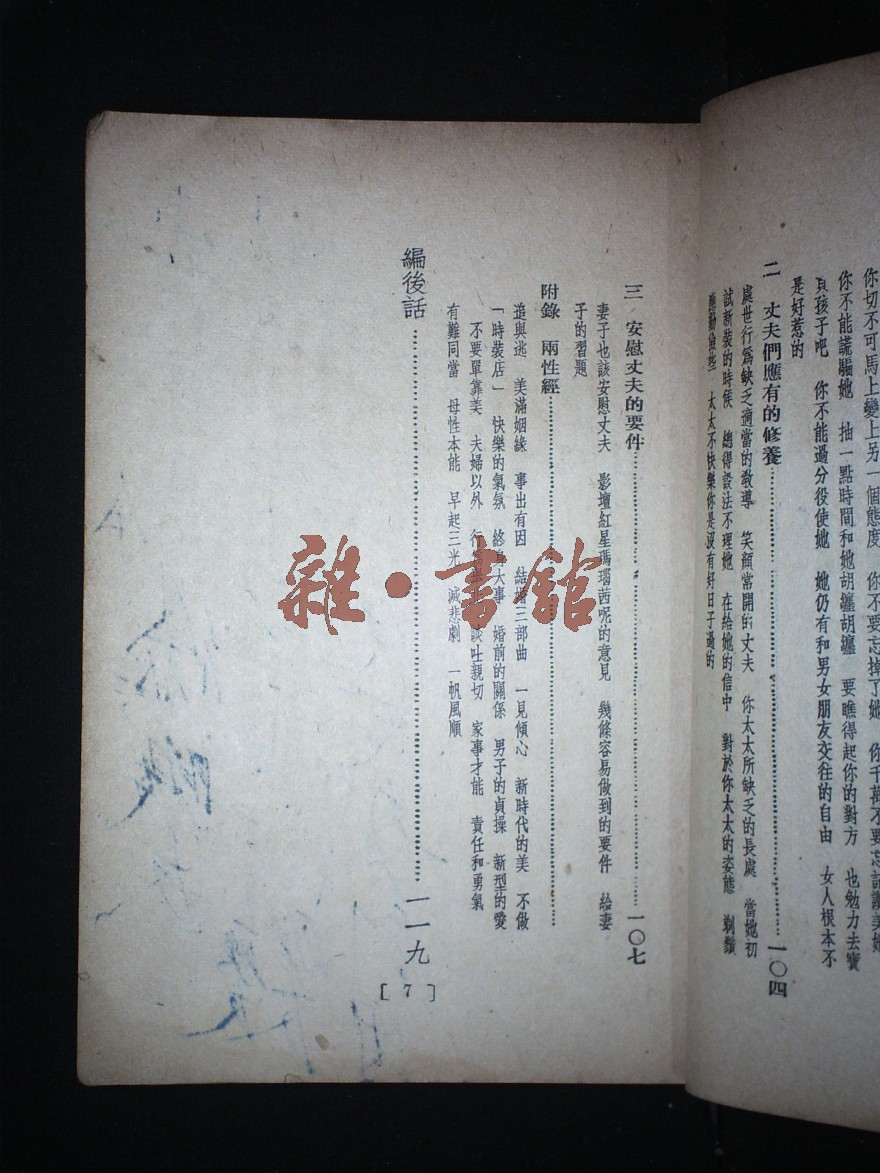 你切不可馬上變上另一個態度 你不要忘掉了她 你千萬不要忘記讚美她
你不能謊騙她 抽一點時間和她胡纏胡纏 要瞧得起你的對方 也勉力去寶
貝孩子吧 你不能過分役使她 她仍有和男女朋友交往的自由 女人根本不
是好惹的
二 丈夫們應有的修養……一〇四
處世行爲缺乏適當的敎導 笑顏常開的丈夫 你太太所缺乏的長處 當她初
試新裝的時候 總得設法不理她 在給她的信中 對於你太太的姿態 剃鬚
應勤儉些 太太不快樂你是沒有好日子過的
三 安慰丈夫的要件……一〇七
妻子也該安慰丈夫 影壇紅星瑪瑙茜呢的意見 幾條容易做到的要件 給妻
子的習題
附錄 兩性經……
追與逃 美滿姻緣 事出有因 結婚三部曲 一見傾心 新時代的美 不做
「時裝店」 快樂的氣氛 終身大事 婚前的關係 男子的貞操 新型的愛
不要單靠美 夫婦以外 行 談吐親切 家事才能 責任和勇氣
有難同當 母性本能 早起三光 減悲劇 一帆風順
編後話……一一九
[7]
雜·書館